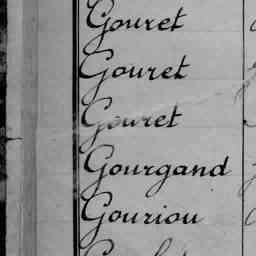 Gouret
Gouret
Gouret
Gourgand
Gouriou